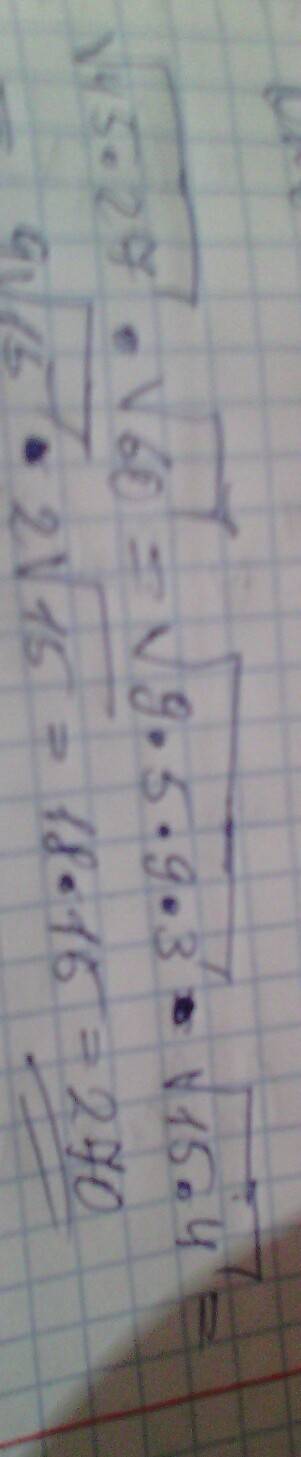 √45·27 · √60 = √9·5·9·3 · √15·4 =
= 9√15 · 2√15 = 18·15 = 270